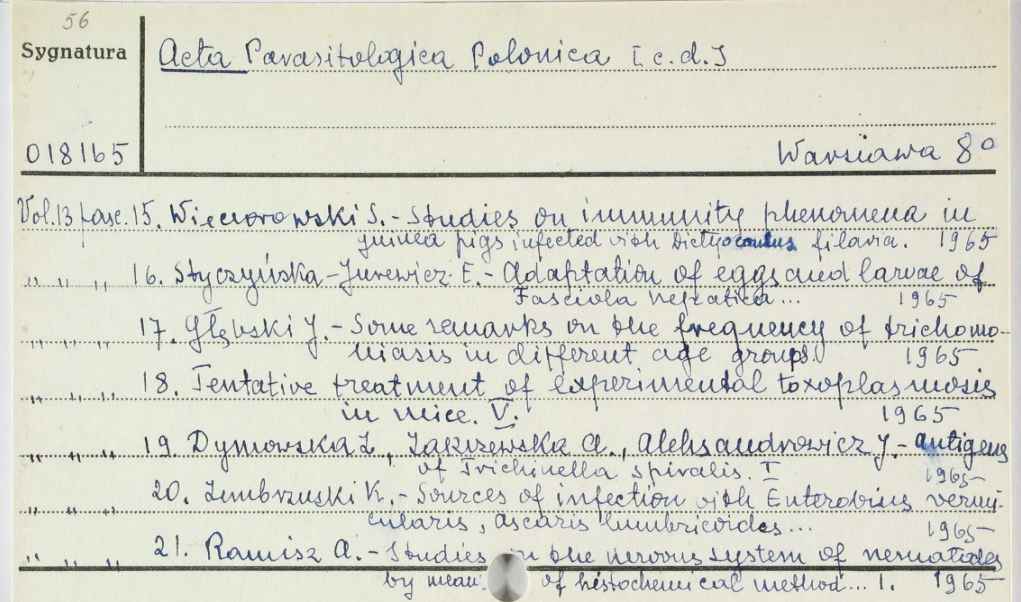 56
Sygnatura
Acta Parasitologica Polonica [c.d.]
018165
Warszawa 8°
Vol. 13 fasc. 15. Więciorowski S. - Studies on immunity phenomena in
guinea pigs infected with Dictyocaulus filaria. 1965
" " " 16. Styczyńska-Jurewicz E. - Adaptation of eggs and larvae of
Fasciola hepatica... 1965
" " " 17. Głębski J. - Some remarks on the frequency of trichomo-
niasis in different age groups. 1965
" " " 18. Tentative treatment of experimental toxoplasmosis
in mice. V. 1965
" " " 19. Dymowska Z., Zakrzewska A., Aleksandrowicz J. - Antigens
of Trichinella spiralis. I 1965
" " " 20. Zembrzuski K. - Sources of infection with Enterobius vermi-
cularis, ascaris lumbricoides... 1965
" " " 21. Ramisz A. - Studies on the nervous system of nematodes
by mean of histochemical method... 1. 1965